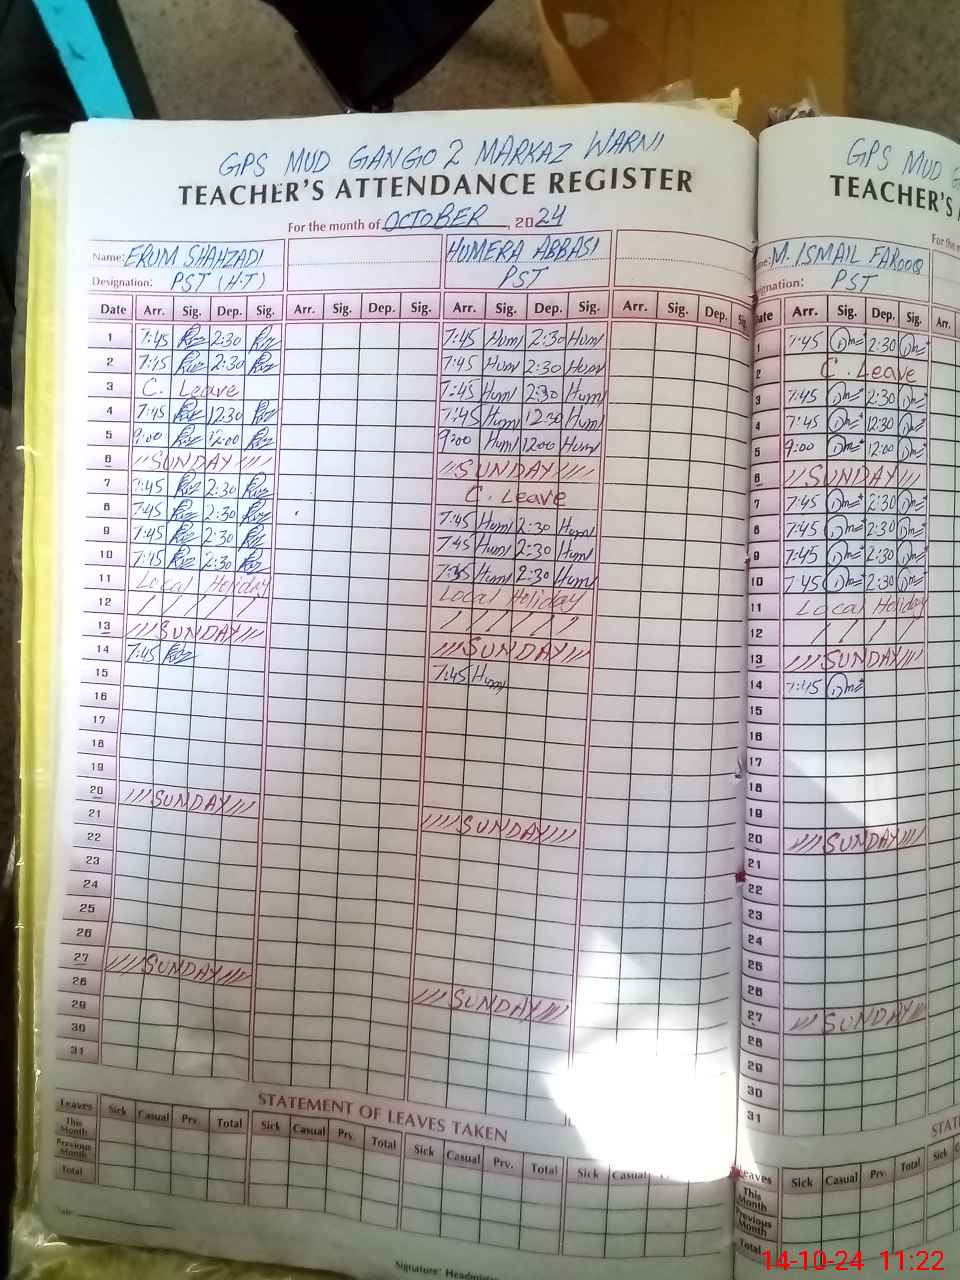 GPS MUD GANGO 2 MARKAZ WARNI
TEACHER'S ATTENDANCE REGISTER
For the month of OCTOBER, 2024
Name: ERUM SHAHZADI HUMERA ABBASI
Designation: PST (H.T) PST
Date Arr. Sig. Dep. Sig. Arr. Sig. Dep. Sig. Arr. Sig. Dep. Sig. Arr. Sig. Dep.
1 7:45 2:30 7:45 Hum 2:30 Hum
2 7:45 2:30 7:45 Hum 2:30 Hum
3 C. Leave 7:45 Hum 2:30 Hum
4 7:45 12:30 7:45 Hum 12:30 Hum
5 9:00 12:00 9:00 Hum 12:00 Hum
6 SUNDAY SUNDAY
7 7:45 2:30 C. Leave
8 7:45 2:30 7:45 Hum 2:30 Hum
9 7:45 2:30 7:45 Hum 2:30 Hum
10 7:45 2:30 7:45 Hum 2:30 Hum
11 Local Holiday Local Holiday
12
13 SUNDAY SUNDAY
14 7:45 7:45 Hum
15
16
17
18
19
20 SUNDAY SUNDAY
21
22
23
24
25
26
27 SUNDAY SUNDAY
28
29
30
31
STATEMENT OF LEAVES TAKEN
Leaves Sick Casual Prv. Total Sick Casual Prv. Total Sick Casual Prv. Total Sick Casual
This Month
Previous Month
Total
Signature: Headmist
GPS MUD
TEACHER'S
For the
M. ISMAIL FAROOQ
signation: PST
Date Arr. Sig. Dep. Sig. Arr.
1 7:45 2:30
2 C. Leave
3 7:45 2:30
4 7:45 12:30
5 9:00 12:00
6 SUNDAY
7 7:45 2:30
8 7:45 2:30
9 7:45 2:30
10 7:45 2:30
11 Local Holiday
12
13 SUNDAY
14 7:45
15
16
17
18
19
20 SUNDAY
21
22
23
24
25
26
27 SUNDAY
28
29
30
31
STATE
Leaves Sick Casual Prv. Total Sick
This Month
Previous Month
Total
14-10-24 11:22